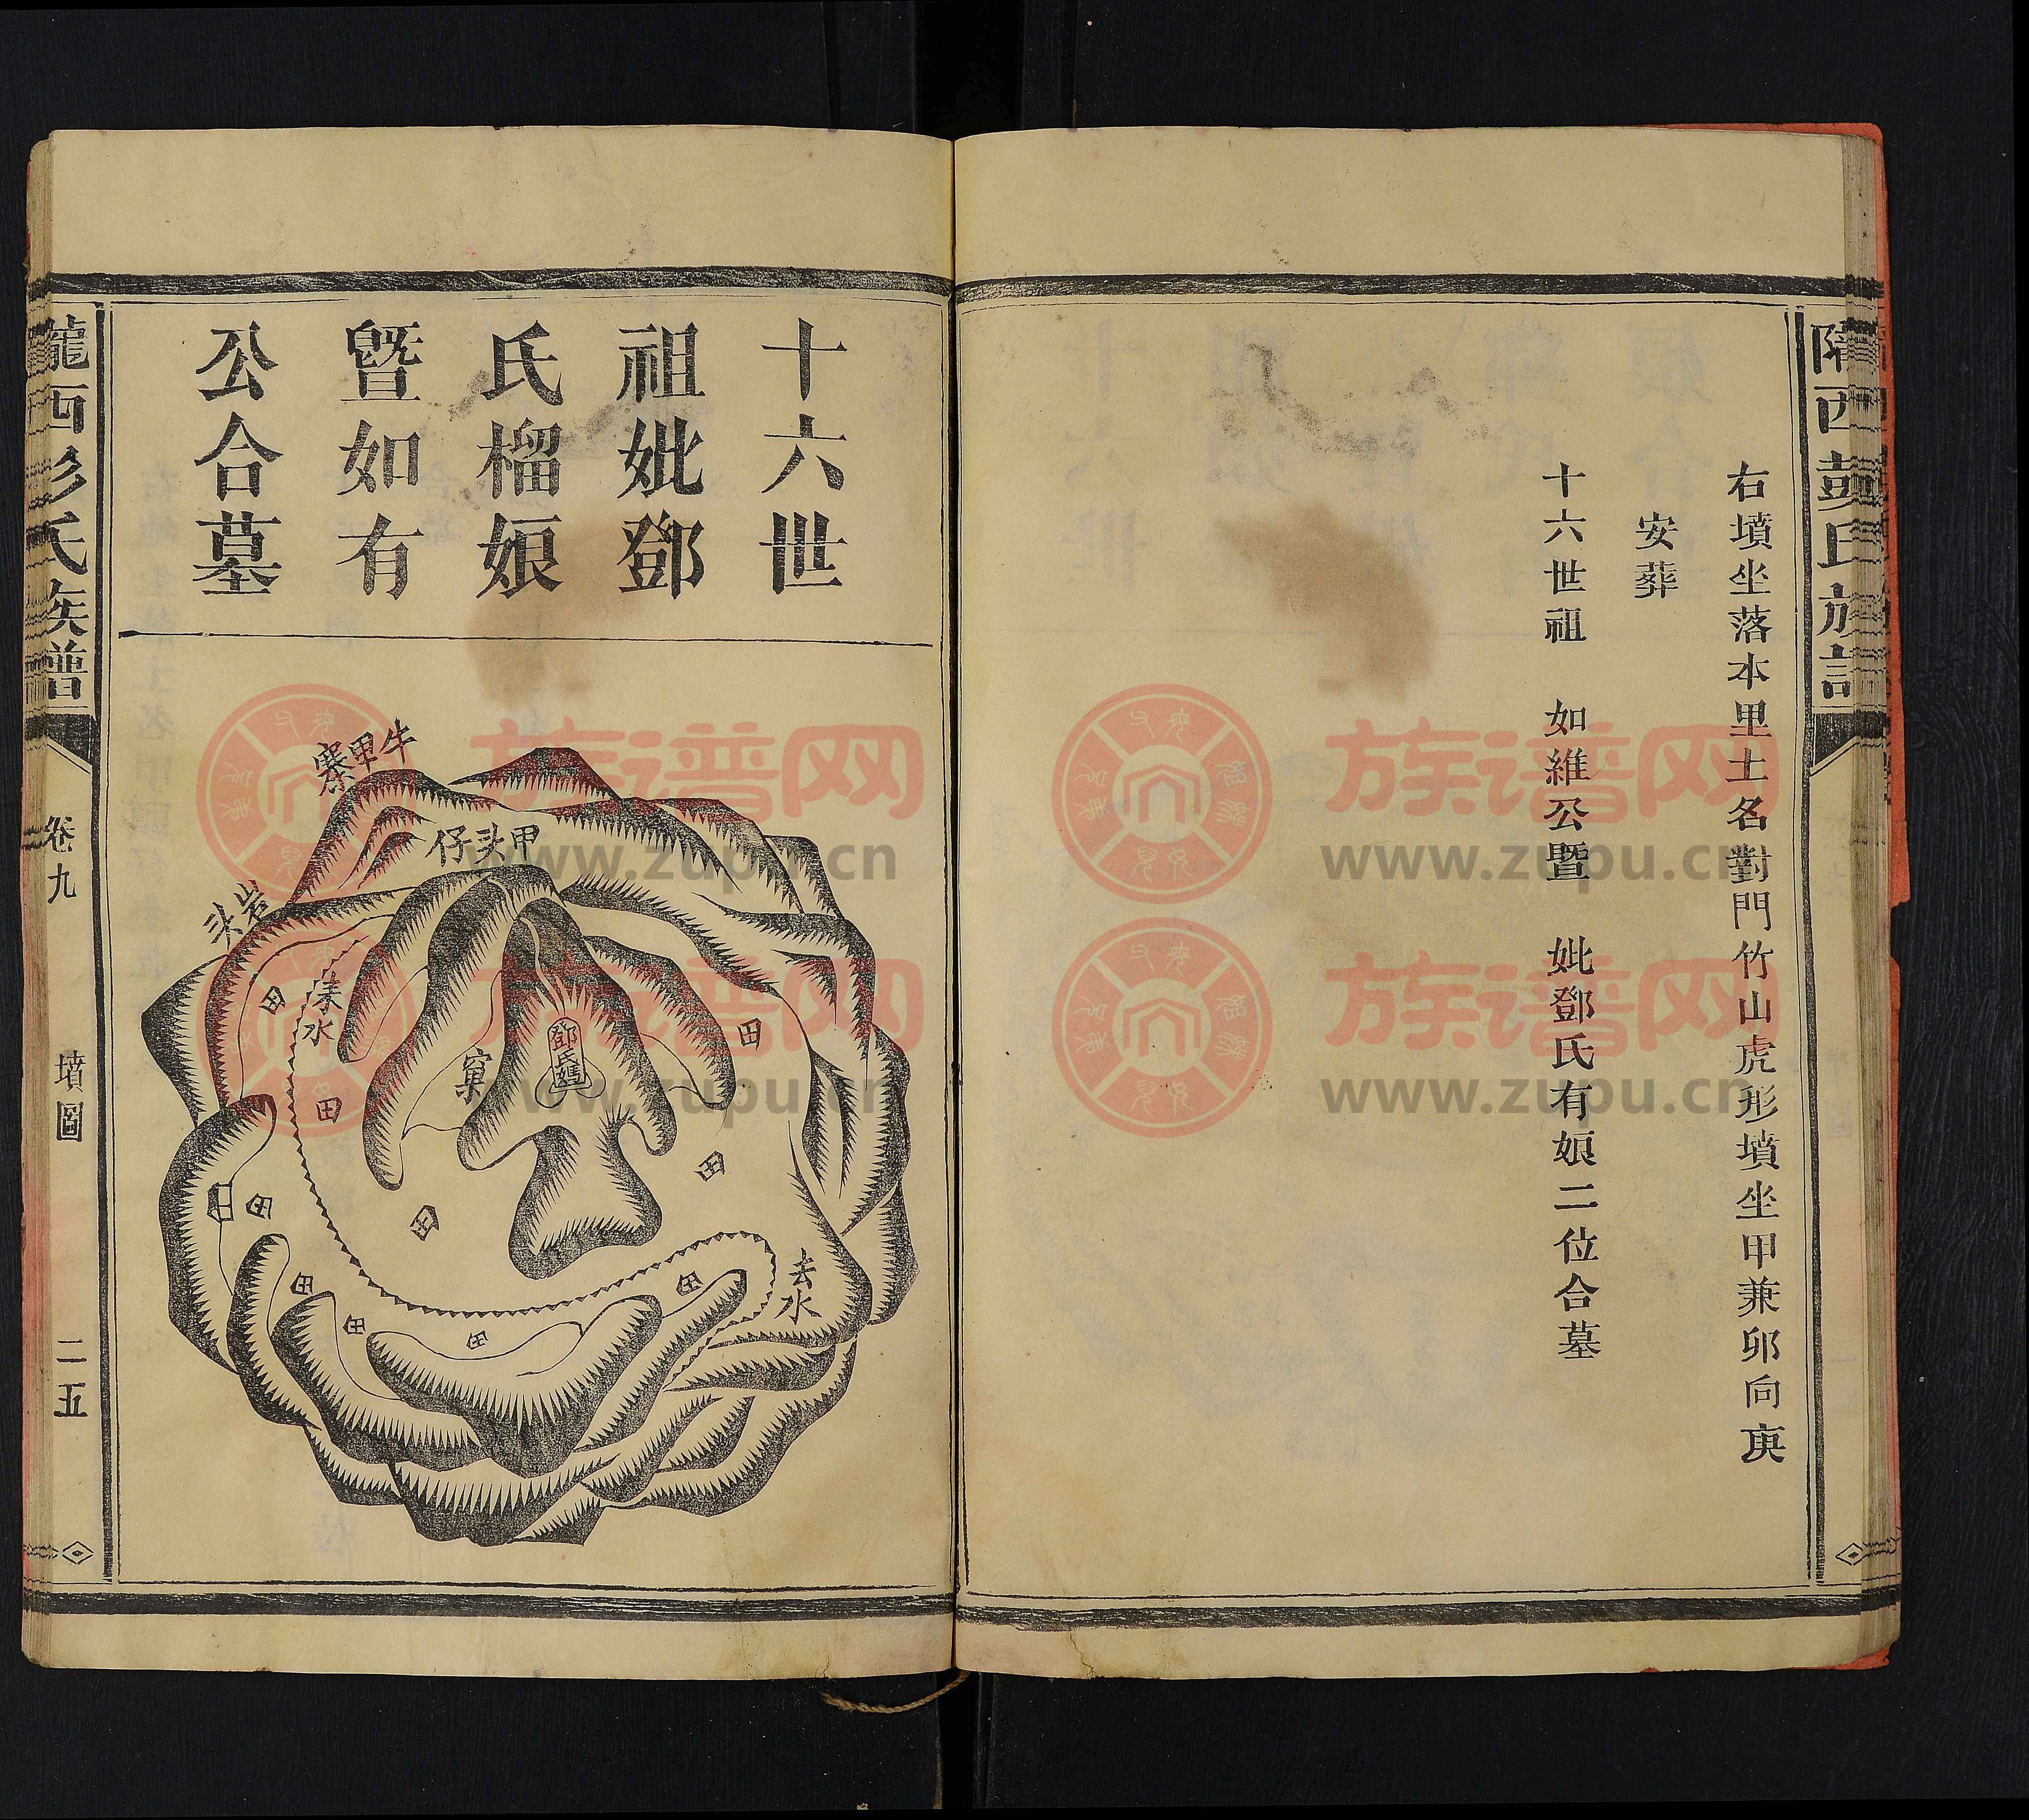 隴西彭氏族譜
右墳坐落本里土名對門竹山虎形墳坐甲兼卯向庚
安葬
十六世祖 如維公暨 妣鄧氏有娘二位合墓
十六世
祖妣鄧
氏榴娘
暨如有
公合墓
牛甲寨
甲头仔
岩头
來水
田
田
窠
鄧氏媽
田
田
田
田
田
田
田
田
去水
隴西彭氏族譜
卷九
墳圖
二五
族谱网
www.zupu.cn
族谱网
www.zupu.cn
族谱网
www.zupu.cn
族谱网
www.zupu.cn